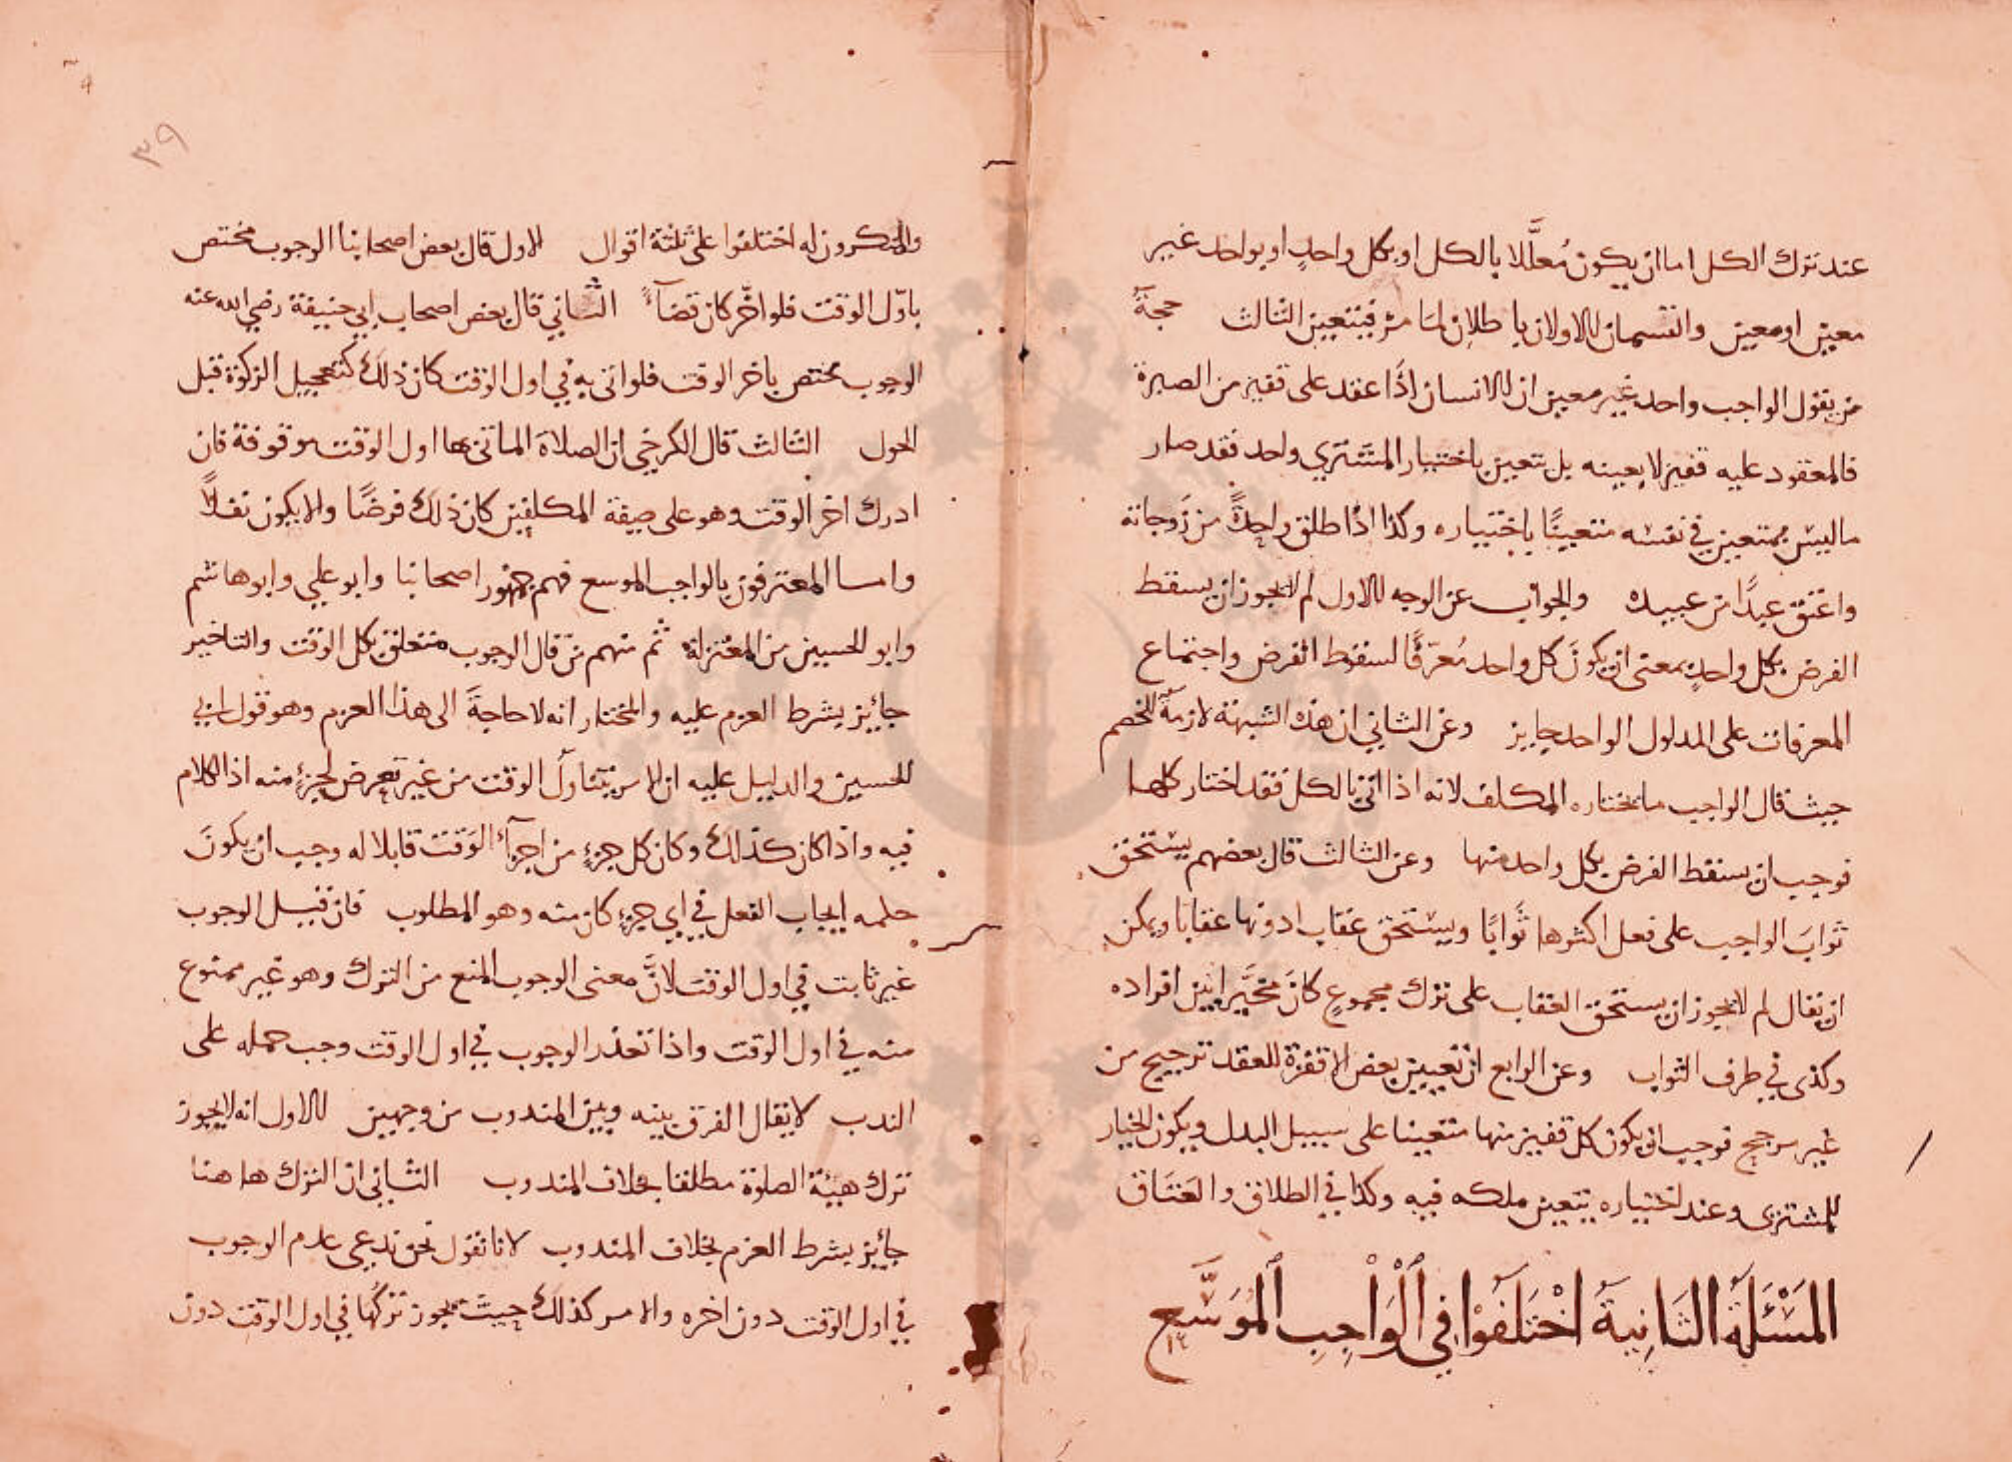 عند ترك الكل اما ان يكون مُعلَّلا بالكل او بكل واحدٍ او بواحد غير
معين او معين والقسمان الاولان باطلان لما مرّ فيتعين الثالث حجةُ
من يقول الواجب واحد غير معين ان الانسان اذا عقد على قفيز من الصبرة
فالمعقود عليه قفيز لا بعينه بل يتعين باختيار المشتري واحد فقد صار
ما ليس بمتعين في نفسه متعينًا باختياره وكذا اذا طلق واحدةً من زوجاته
واعتق عبدًا من عبيده والجواب عن الوجه الاول لم لا يجوز ان يسقط
الفرض بكل واحدٍ بمعنى ان يكونَ كل واحد مُعرّفًا لسقوط الفرض واجتماع
المعرفات على المدلول الواحد جايز وعن الثاني ان هذه الشبهة لازمةٌ للخصم
حيث قال الواجب ما يختاره المكلف لانه اذا اتى بالكل فقد اختار كلها
فوجب ان يسقط الفرض بكل واحد منها وعن الثالث قال بعضهم يستحق
ثوابَ الواجب على فعل اكثرها ثَوابًا ويستحق عقاب ادونها عقابا ويمكن
ان يقال لم لا يجوز ان يستحق العقاب على ترك مجموعٍ كانَ مخيَّرا بين افراده
وكذى في طرف الثواب وعن الرابع ان تعيين بعض الاقفزة للعقد ترجيح من
غير مرجح فوجب ان يكون كل قفيز منها متعينا على سبيل البدل ويكون الخيار
للمشترى وعند اختياره يتعين ملكه فيه وكذا في الطلاق والعَتَاق
المَسْئَلَة الثَانِيَة اخْتَلَفوْا في اَلْوَاجِبِ المُوَسَّع
٣٩
والمنكرون له اختلفوا على ثلثة اقوال الاول قال بعض اصحابنا الوجوب مختص
باوّل الوقت فلو اخّر كان قضآءً الثاني قال بعض اصحاب ابي حنيفة رضي الله عنه
الوجوب مختص باخر الوقت فلو اتى به في اول الوقت كان ذلك كتعجيل الزكوة قبل
الحول الثالث قال الكرخي ان الصلاة الماتى بها اول الوقت موقوفة فان
ادرك اخر الوقت وهو على صيفة المكلفين كان ذلك فرضًا والا يكون نفلاً
واما المعترفون بالواجب الموسع فهم جمهور اصحابنا وابو علي وابو هاشم
وابو الحسين من المعتزلة ثم منهم من قال الوجوب متعلق بكل الوقت والتاخير
جايز بشرط العزم عليه والمختار انه لا حاجةَ الى هذا العزم وهو قول ابي
الحسين والدليل عليه ان الامر يتناول الوقت من غير تعرض لجزءٍ منه اذ الكلام
فيه واذا كان كذلك وكان كل جزءٍ من اجزآء الوَقت قابلا له وجب ان يكونَ
حكمه ايجاب الفعل في اي جزءٍ كان منه وهو المطلوب فان قيل الوجوب
غير ثابت في اول الوقت لانَّ معنى الوجوب المنع من الترك وهو غير ممنوع
منه في اول الوقت واذا تعذر الوجوب في اول الوقت وجب حمله على
الندب لا يقال الفرق بينه وبين المندوب من وجهين الاول انه لا يجوز
ترك هيئة الصلوة مطلقا بخلاف المندوب الثاني ان الترك هاهنا
جايز بشرط العزم بخلاف المندوب لانا نقول نحن ندعي عدم الوجوب
في اول الوقت دون اخره والامر كذلك حيث يجوز تركُها في اول الوقت دون